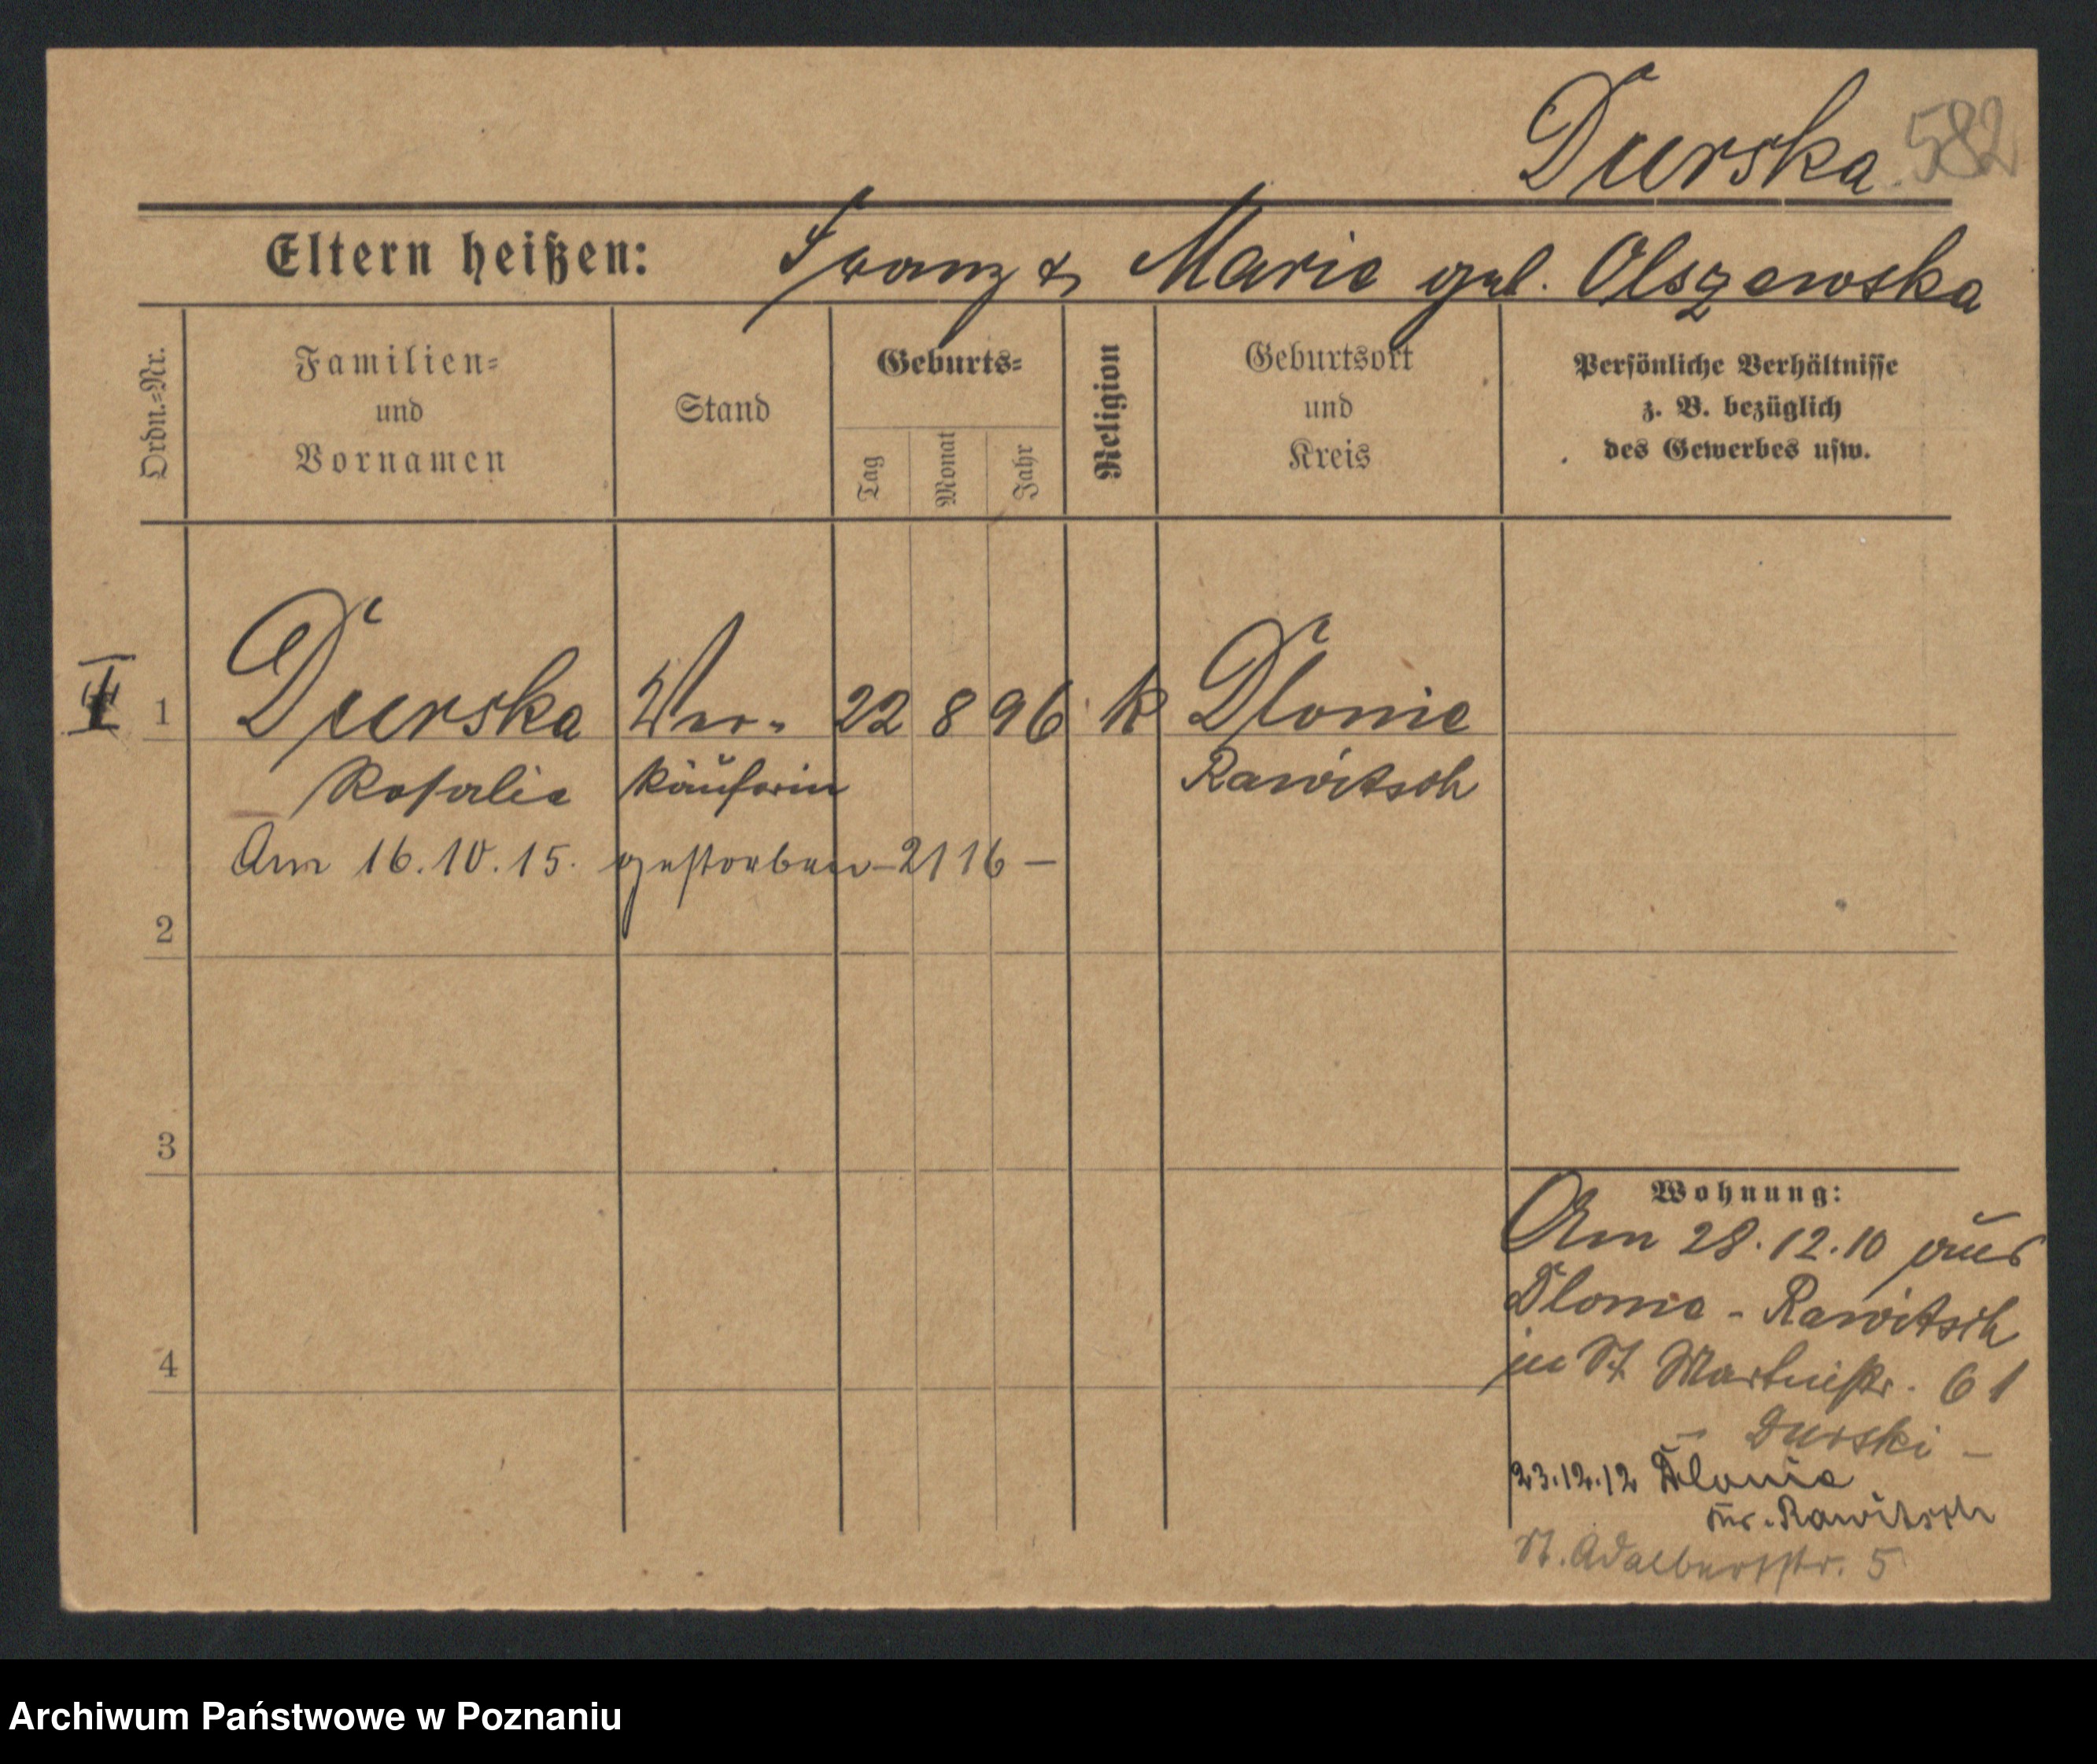 Durska 582
Eltern heißen: Franz & Marie geb. Olszewska
Ordn.-Nr.
Familien-
und
Vornamen
Stand
Geburts-
Tag
Monat
Jahr
Religion
Geburtsort
und
Kreis
Persönliche Verhältnisse
z. B. bezüglich
des Gewerbes usw.
1 Durska Ver- 22 8 96 k Dlonie
Rosalie käuferin Rawitsch
Am 16.10.15. gestorben – 2116 –
2
3
4
Wohnung:
Am 28.12.10 aus
Dlonie - Rawitsch
in St Martinstr. 61
– Durski –
23.12.12 Dlonie
Kr. Rawitsch
St. Adalbertstr. 5
Archiwum Państwowe w Poznaniu